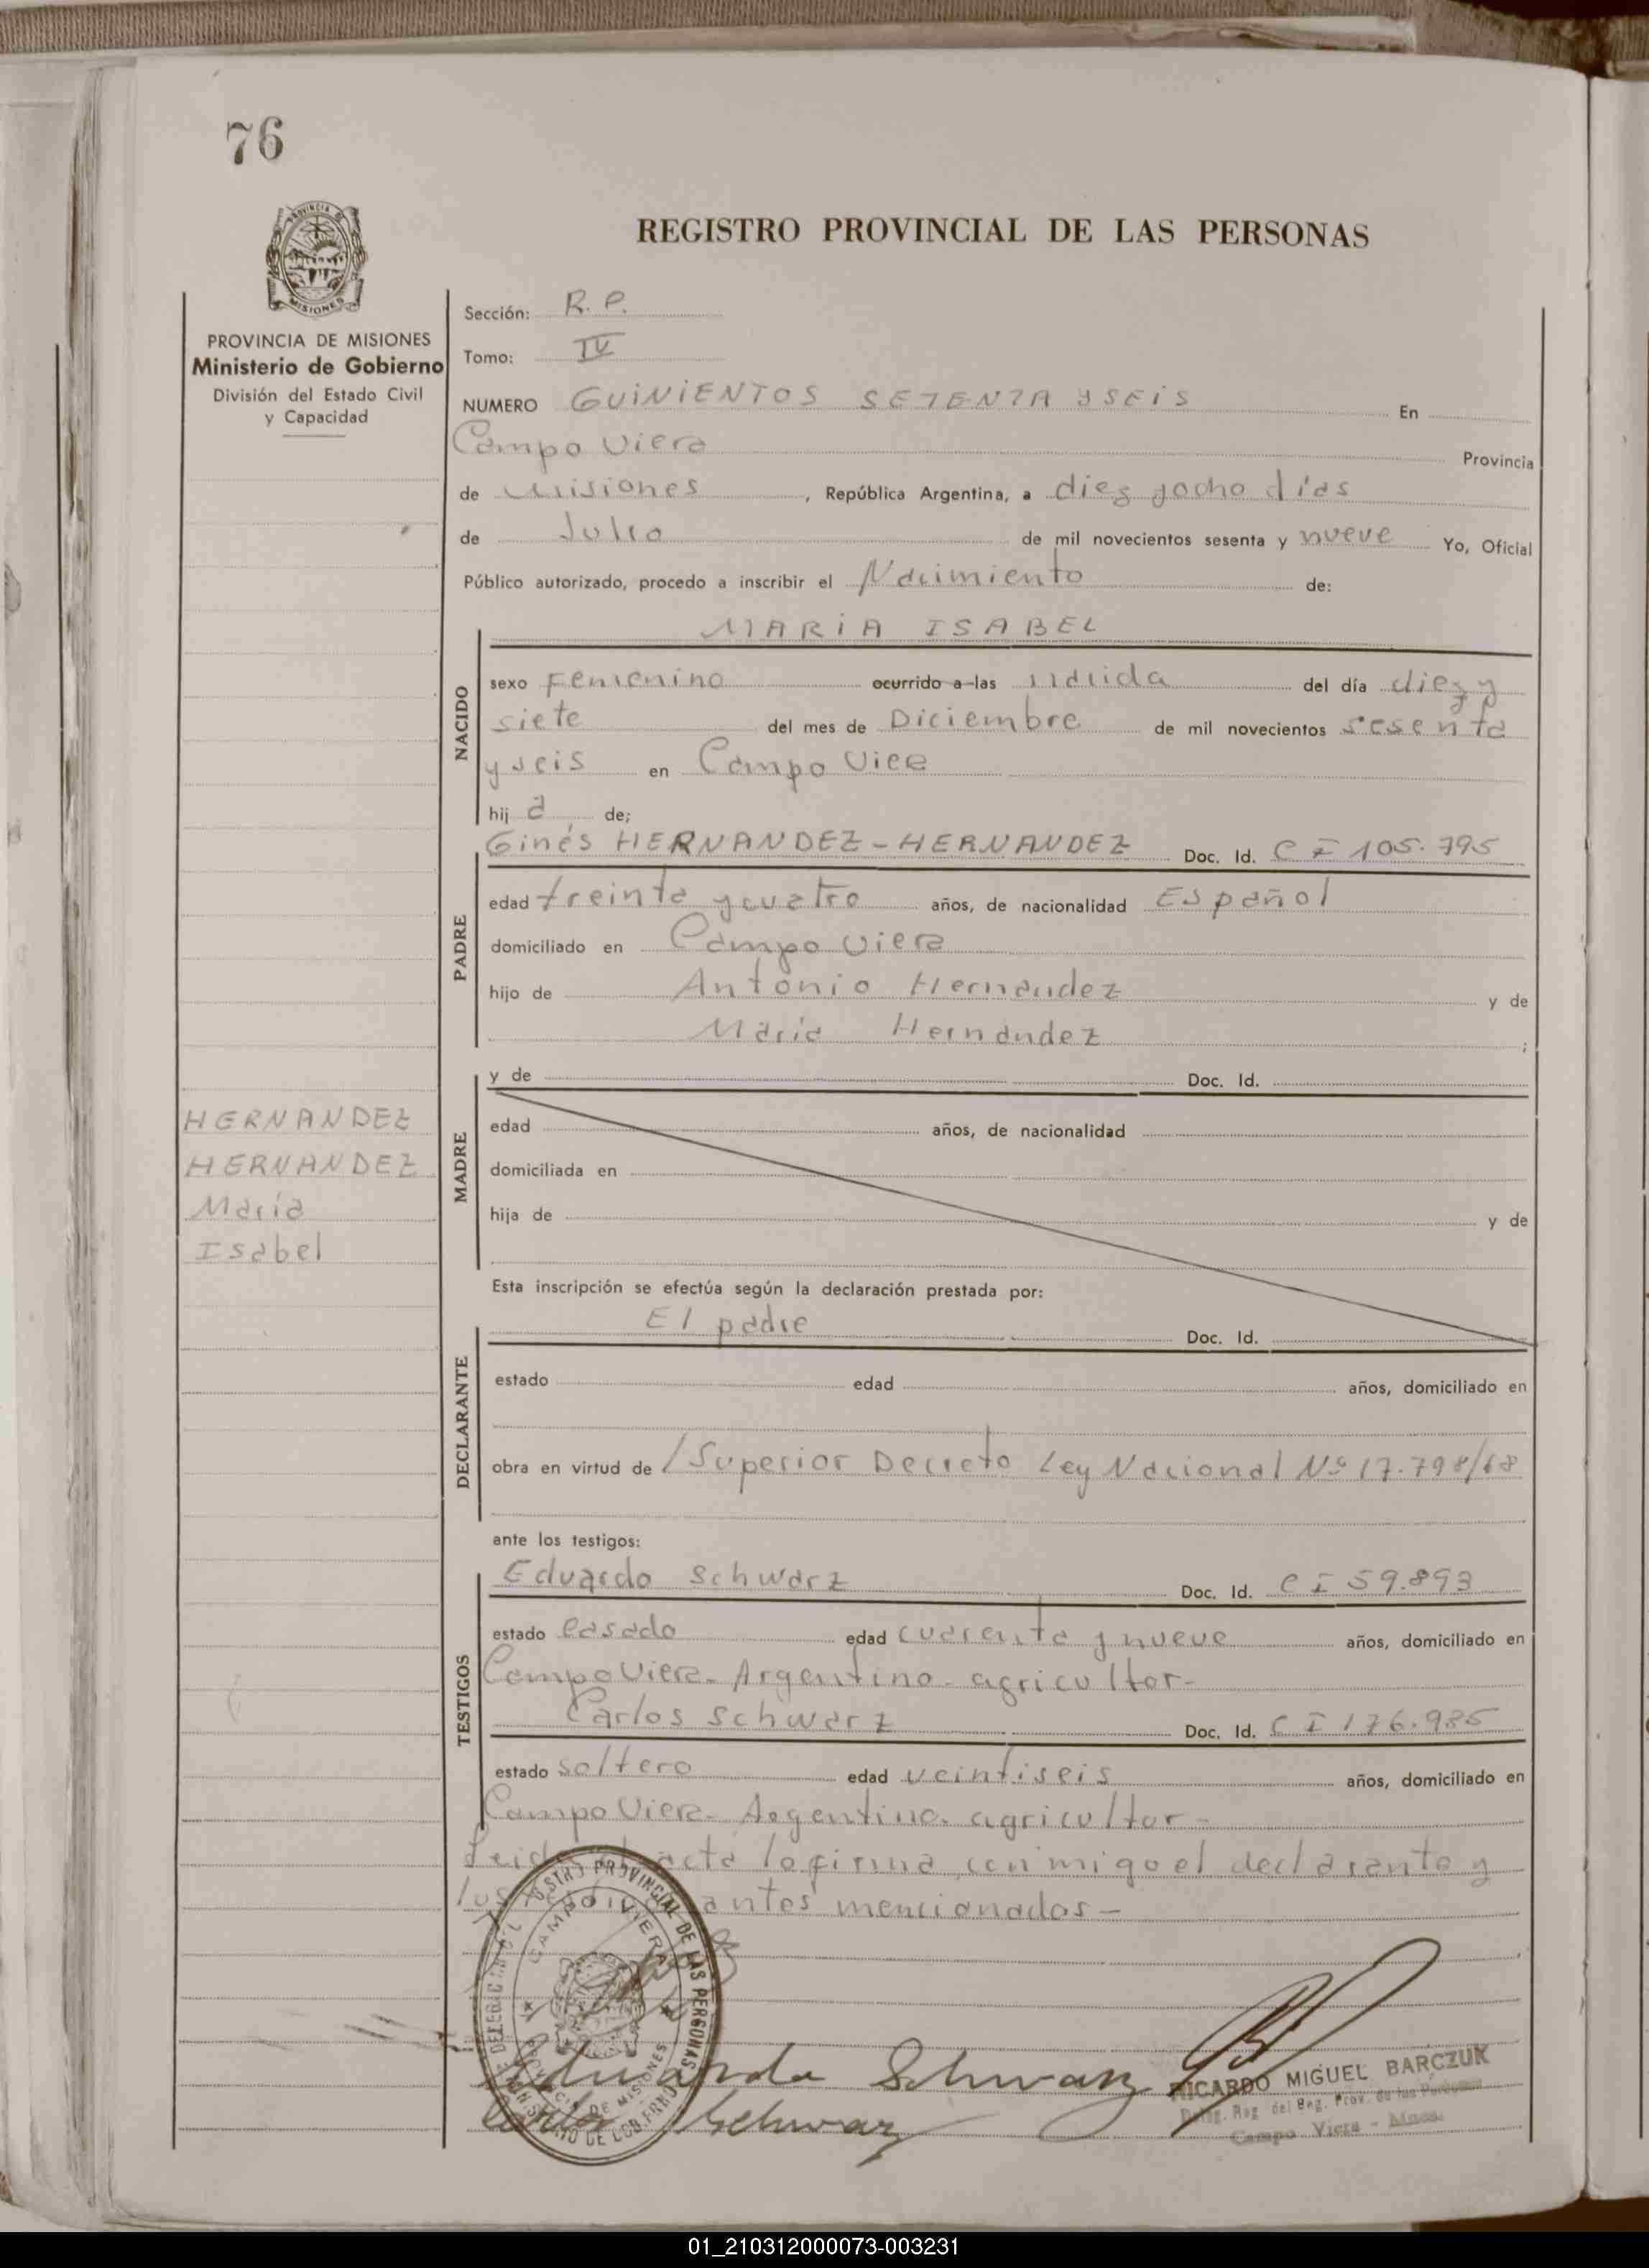 76
REGISTRO PROVINCIAL DE LAS PERSONAS
PROVINCIA DE
MISIONES
PROVINCIA DE MISIONES
Ministerio de Gobierno
División del Estado Civil
y Capacidad
Sección: R. P.
Tomo: IV
NUMERO GUINIENTOS SETENTA Y SEIS En
Campo Viera Provincia
de Misiones, República Argentina, a diez y ocho días
de Julio de mil novecientos sesenta y nueve Yo, Oficial
Público autorizado, procedo a inscribir el Nacimiento de:
MARIA ISABEL
NACIDO
sexo Femenino ocurrido a las nacida del día diez y
siete del mes de Diciembre de mil novecientos sesenta
y seis en Campo Viera
hij a de;
Ginés HERNANDEZ - HERNANDEZ Doc. Id. C I 105.795
PADRE
edad treinta y cuatro años, de nacionalidad Español
domiciliado en Campo Viera
hijo de Antonio Hernandez y de
Maria Hernandez ;
y de Doc. Id.
MADRE
edad años, de nacionalidad
domiciliada en
hija de y de
HERNANDEZ
HERNANDEZ
María
Isabel
Esta inscripción se efectúa según la declaración prestada por:
El padre Doc. Id.
DECLARANTE
estado edad años, domiciliado en
obra en virtud de / Superior Decreto Ley Nacional Nº 17.798/68
ante los testigos:
Eduardo Schwarz Doc. Id. C I 59.893
TESTIGOS
estado Casado edad cuarenta y nueve años, domiciliado en
Campo Viera - Argentino - agricultor -
Carlos Schwarz Doc. Id. C I 176.985
estado soltero edad veintiseis años, domiciliado en
Campo Viera - Argentino - agricultor -
Leida acta la firma conmigo el declarante y
los antes mencionados -
REGISTRO PROVINCIAL DE LAS PERSONAS
CAMPO VIERA
PROVINCIA DE MISIONES
Eduardo Schwarz
Carlos Schwarz
RICARDO MIGUEL BARCZUK
Deleg. Reg. del Reg. Prov. de las Personas
Campo Viera - Mnes.
01_210312000073-003231